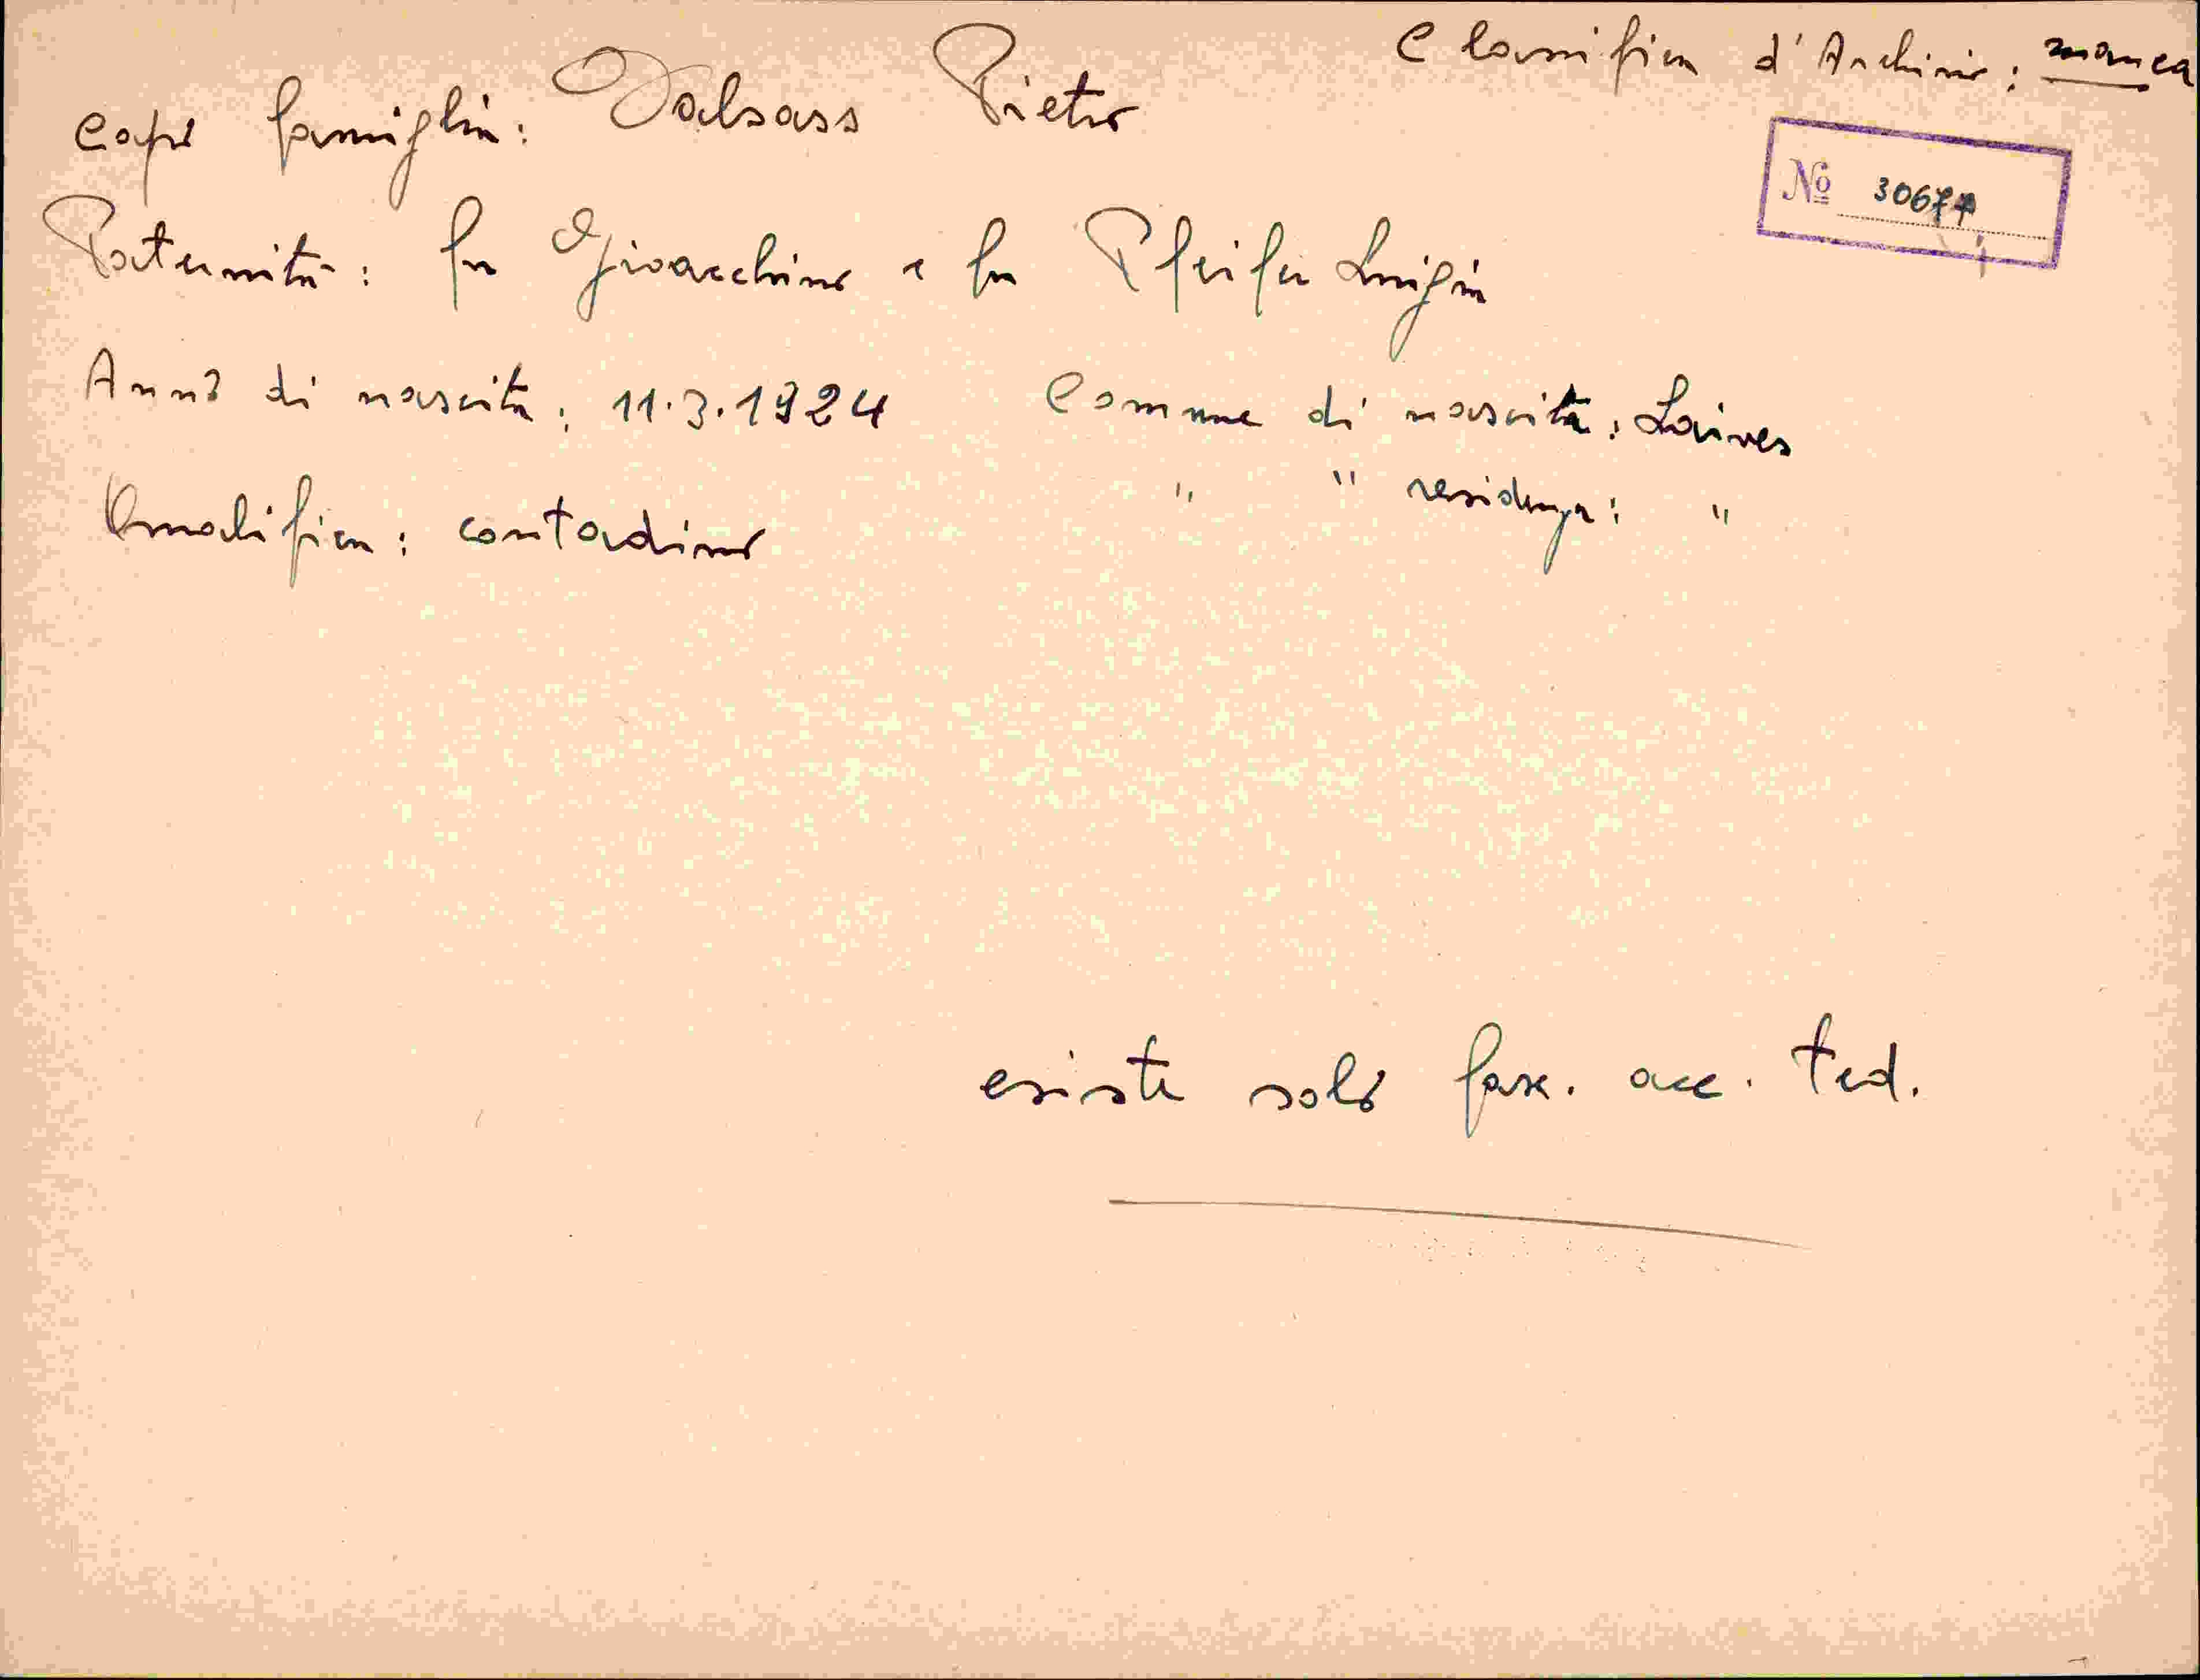 Classifica d'Archivio: manca
Capo famiglia: Dalsass Pietro
№ 30677
Paternità: fu Gioacchino e fu Pfeifer Luigia
Anno di nascita: 11.3.1924 Comune di nascita: Laives
Qualifica: contadino " " residenza: "
esiste solo fasc. acc. ted.